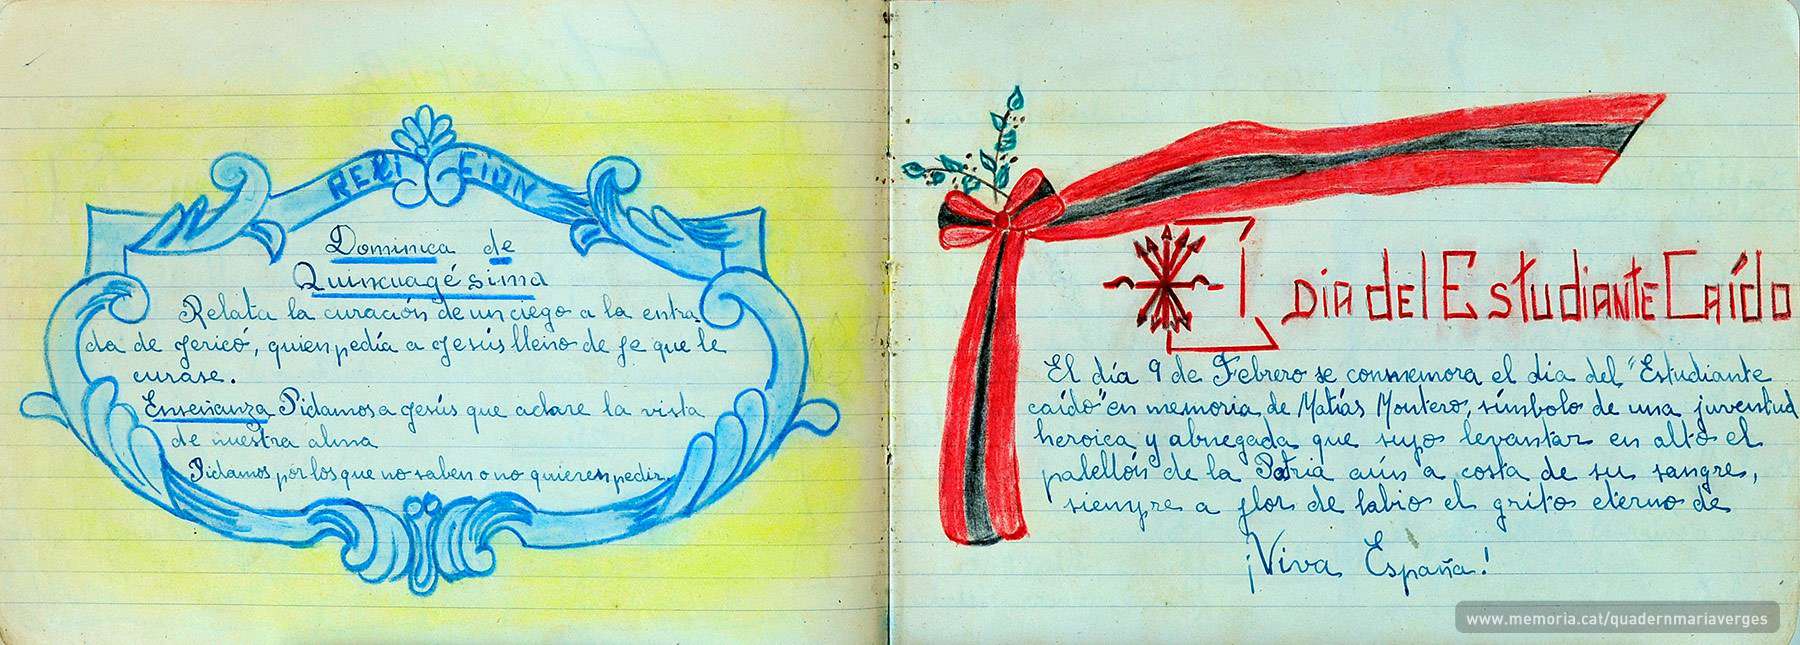 RELIGION
Dominica de
Quincuagésima
Relata la curación de un ciego a la entra
da de Jericó, quien pedía a Jesús lleno de fe que le
curase.
Enseñanza Pidamos a Jesús que aclare la vista
de nuestra alma
Pidamos por los que no saben o no quieren pedir.
El DIA del Estudiante Caído
El día 9 de Febrero se conmemora el dia del "Estudiante
caído" en memoria de Matías Montero, símbolo de una juventud
heroica y abnegada que supo levantar en alto el
pabellón de la Patria aún a costa de su sangre,
siempre a flor de labio el grito eterno de
¡Viva España!
www.memoria.cat/quadernmariaverges